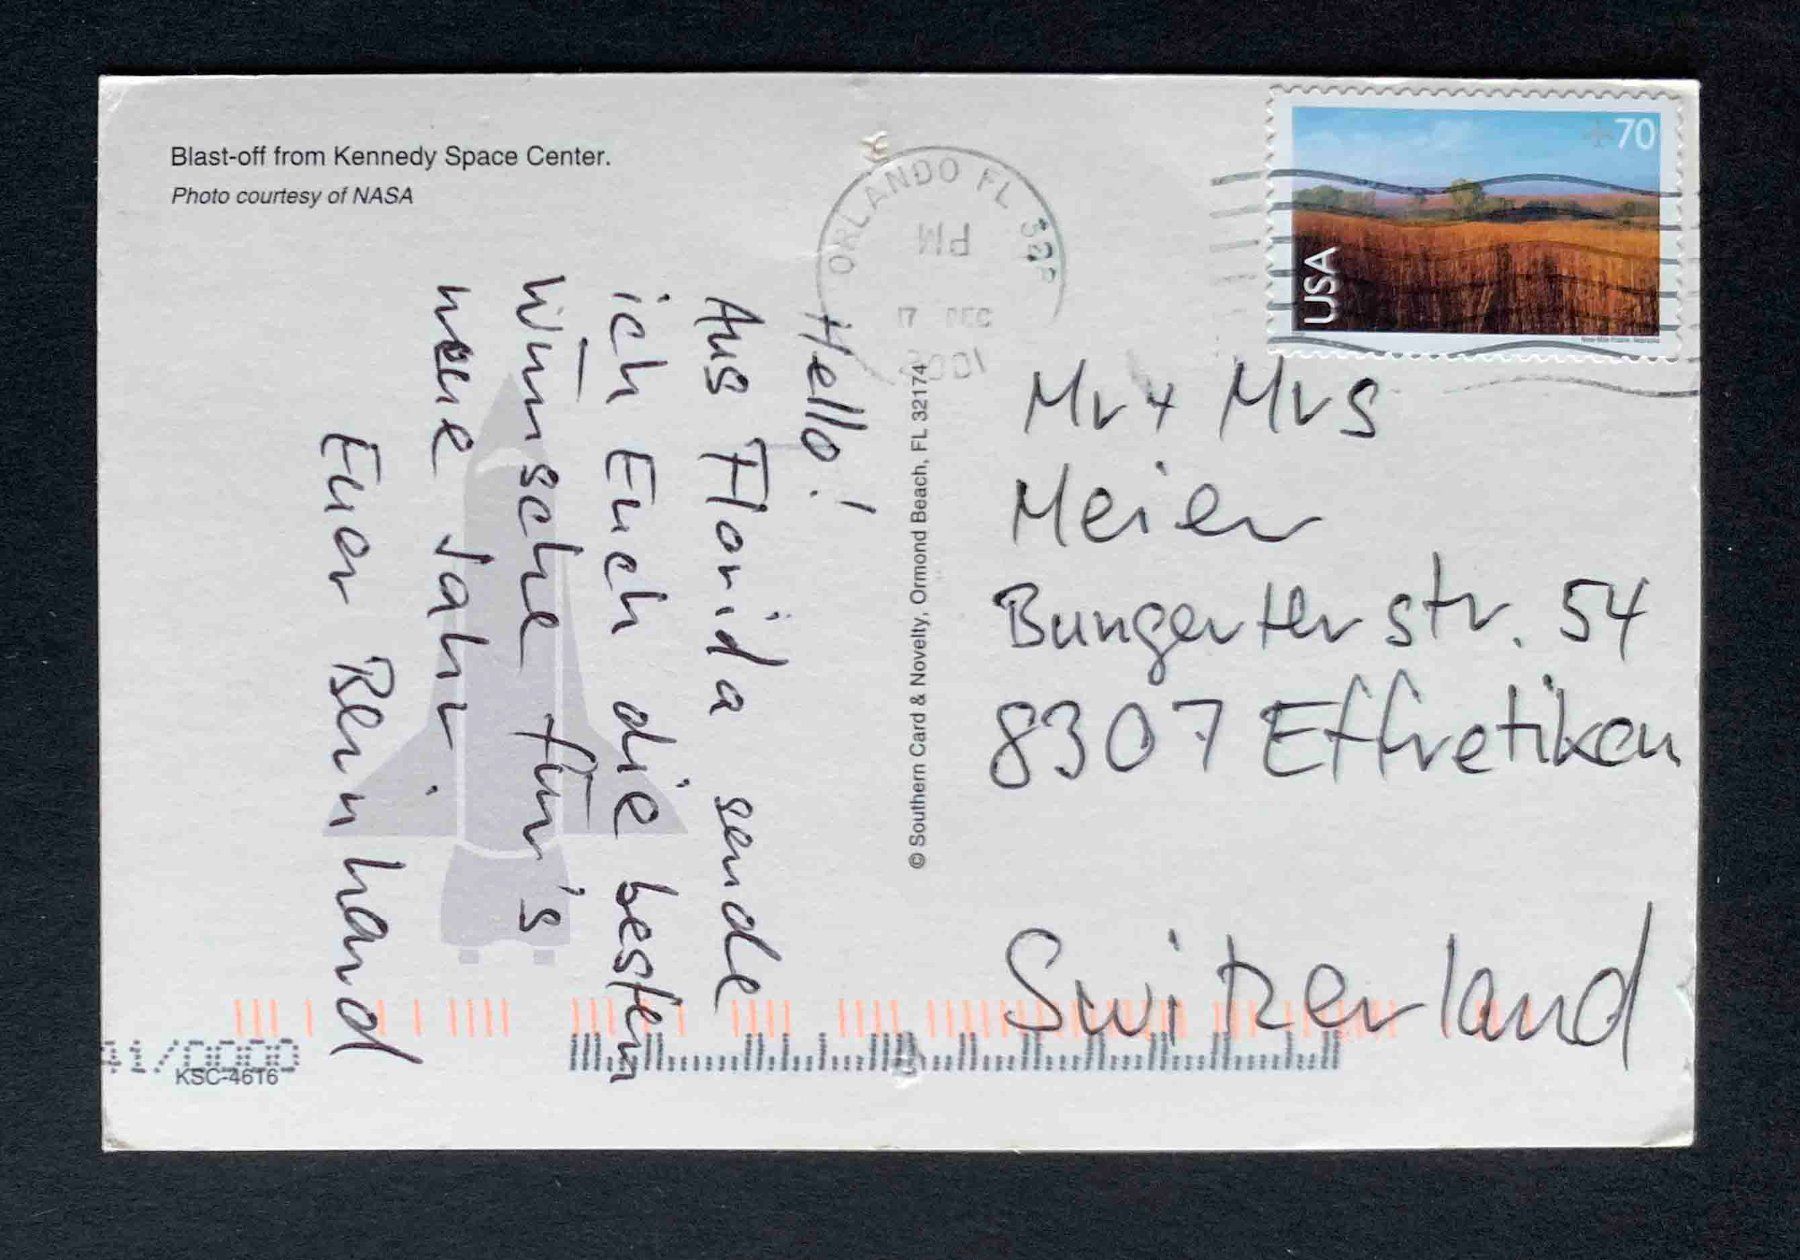 Blast-off from Kennedy Space Center.
Photo courtesy of NASA
Hello!
Aus Florida sende
ich Euch die besten
Wünsche für's
neue Jahr.
Euer Bernhard
© Southern Card & Novelty, Ormond Beach, FL 32174
ORLANDO FL
PM
17 DEC
2001
70
USA
Mr + Mrs
Meier
Bungerterstr. 54
8307 Effretikon
Switzerland
KSC-4616